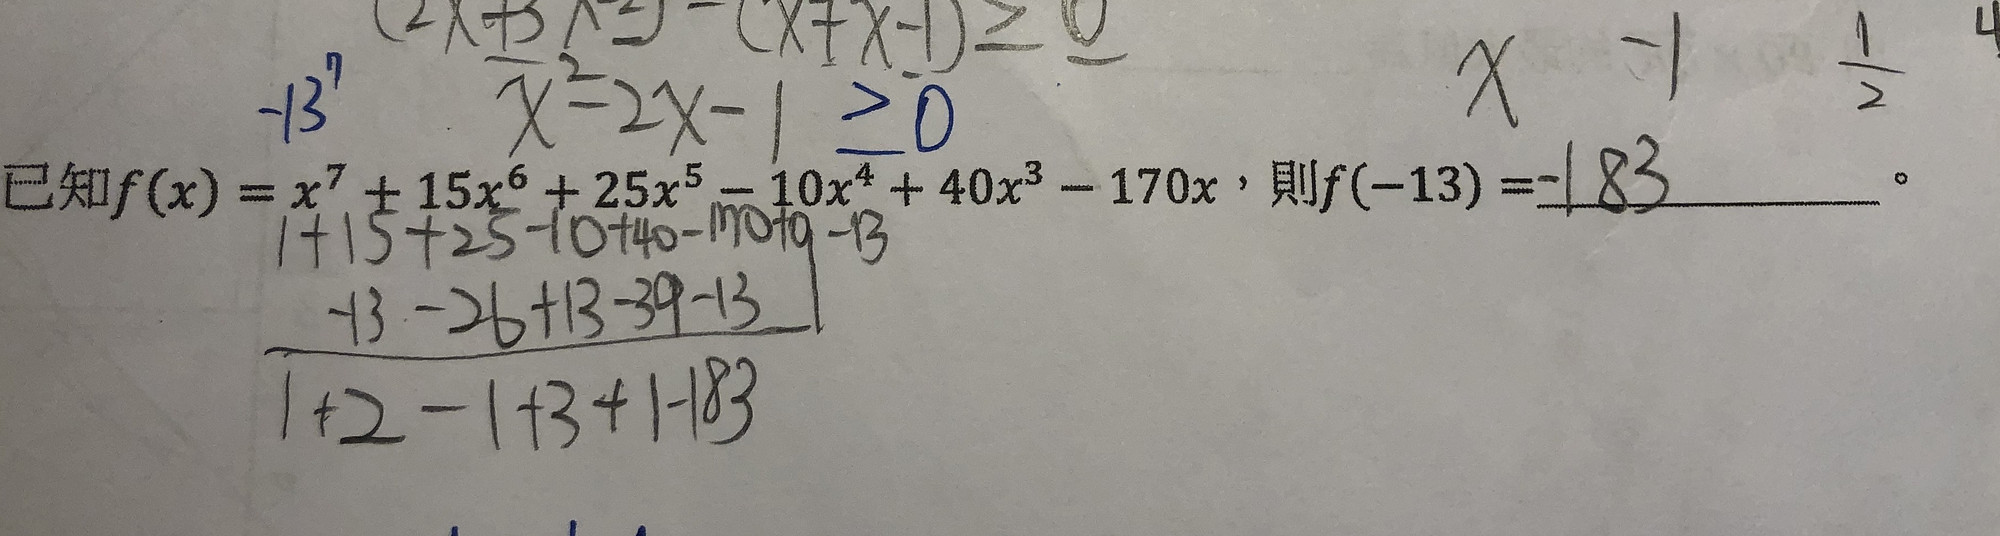 (2x+3x²) - (x+x-1) ≥ 0
x -1 1/2 4
-13⁷ x²-2x-1 ≥0
已知f(x) = x⁷ + 15x⁶ + 25x⁵ − 10x⁴ + 40x³ − 170x，則f(−13) =-183。
1+15+25-10+40-170+0 -13
-13-26+13-39-13
1+2-1+3+1-183